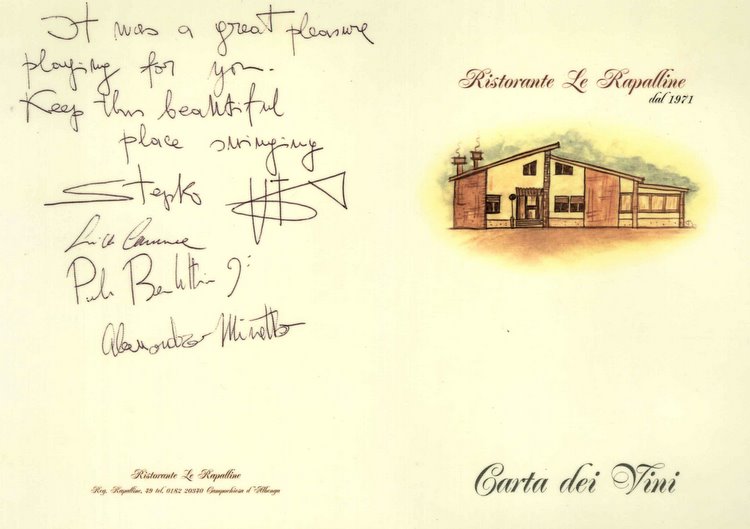 It was a great pleasure
playing for you.
Keep this beautiful
place swinging
Stepko
Alessandro Minetto
Ristorante Le Rapalline
Reg. Rapalline, 49 tel. 0182 20340 Campochiesa d'Albenga
Ristorante Le Rapalline
dal 1971
Carta dei Vini